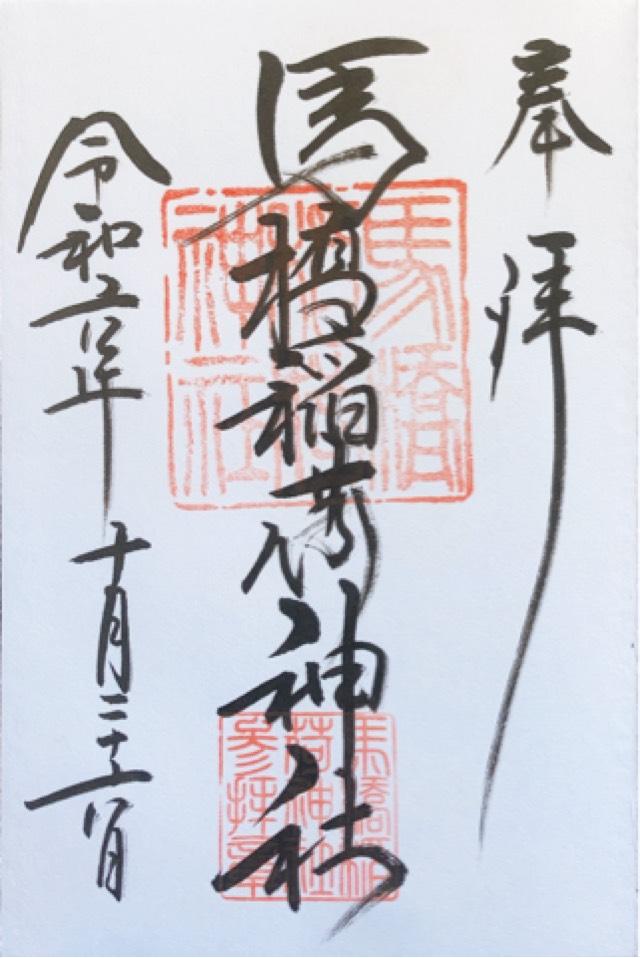 奉拝
馬橋稲荷神社
令和五年十月二十五日
馬橋
稲荷
神社
馬橋稲
荷神社
参拝章